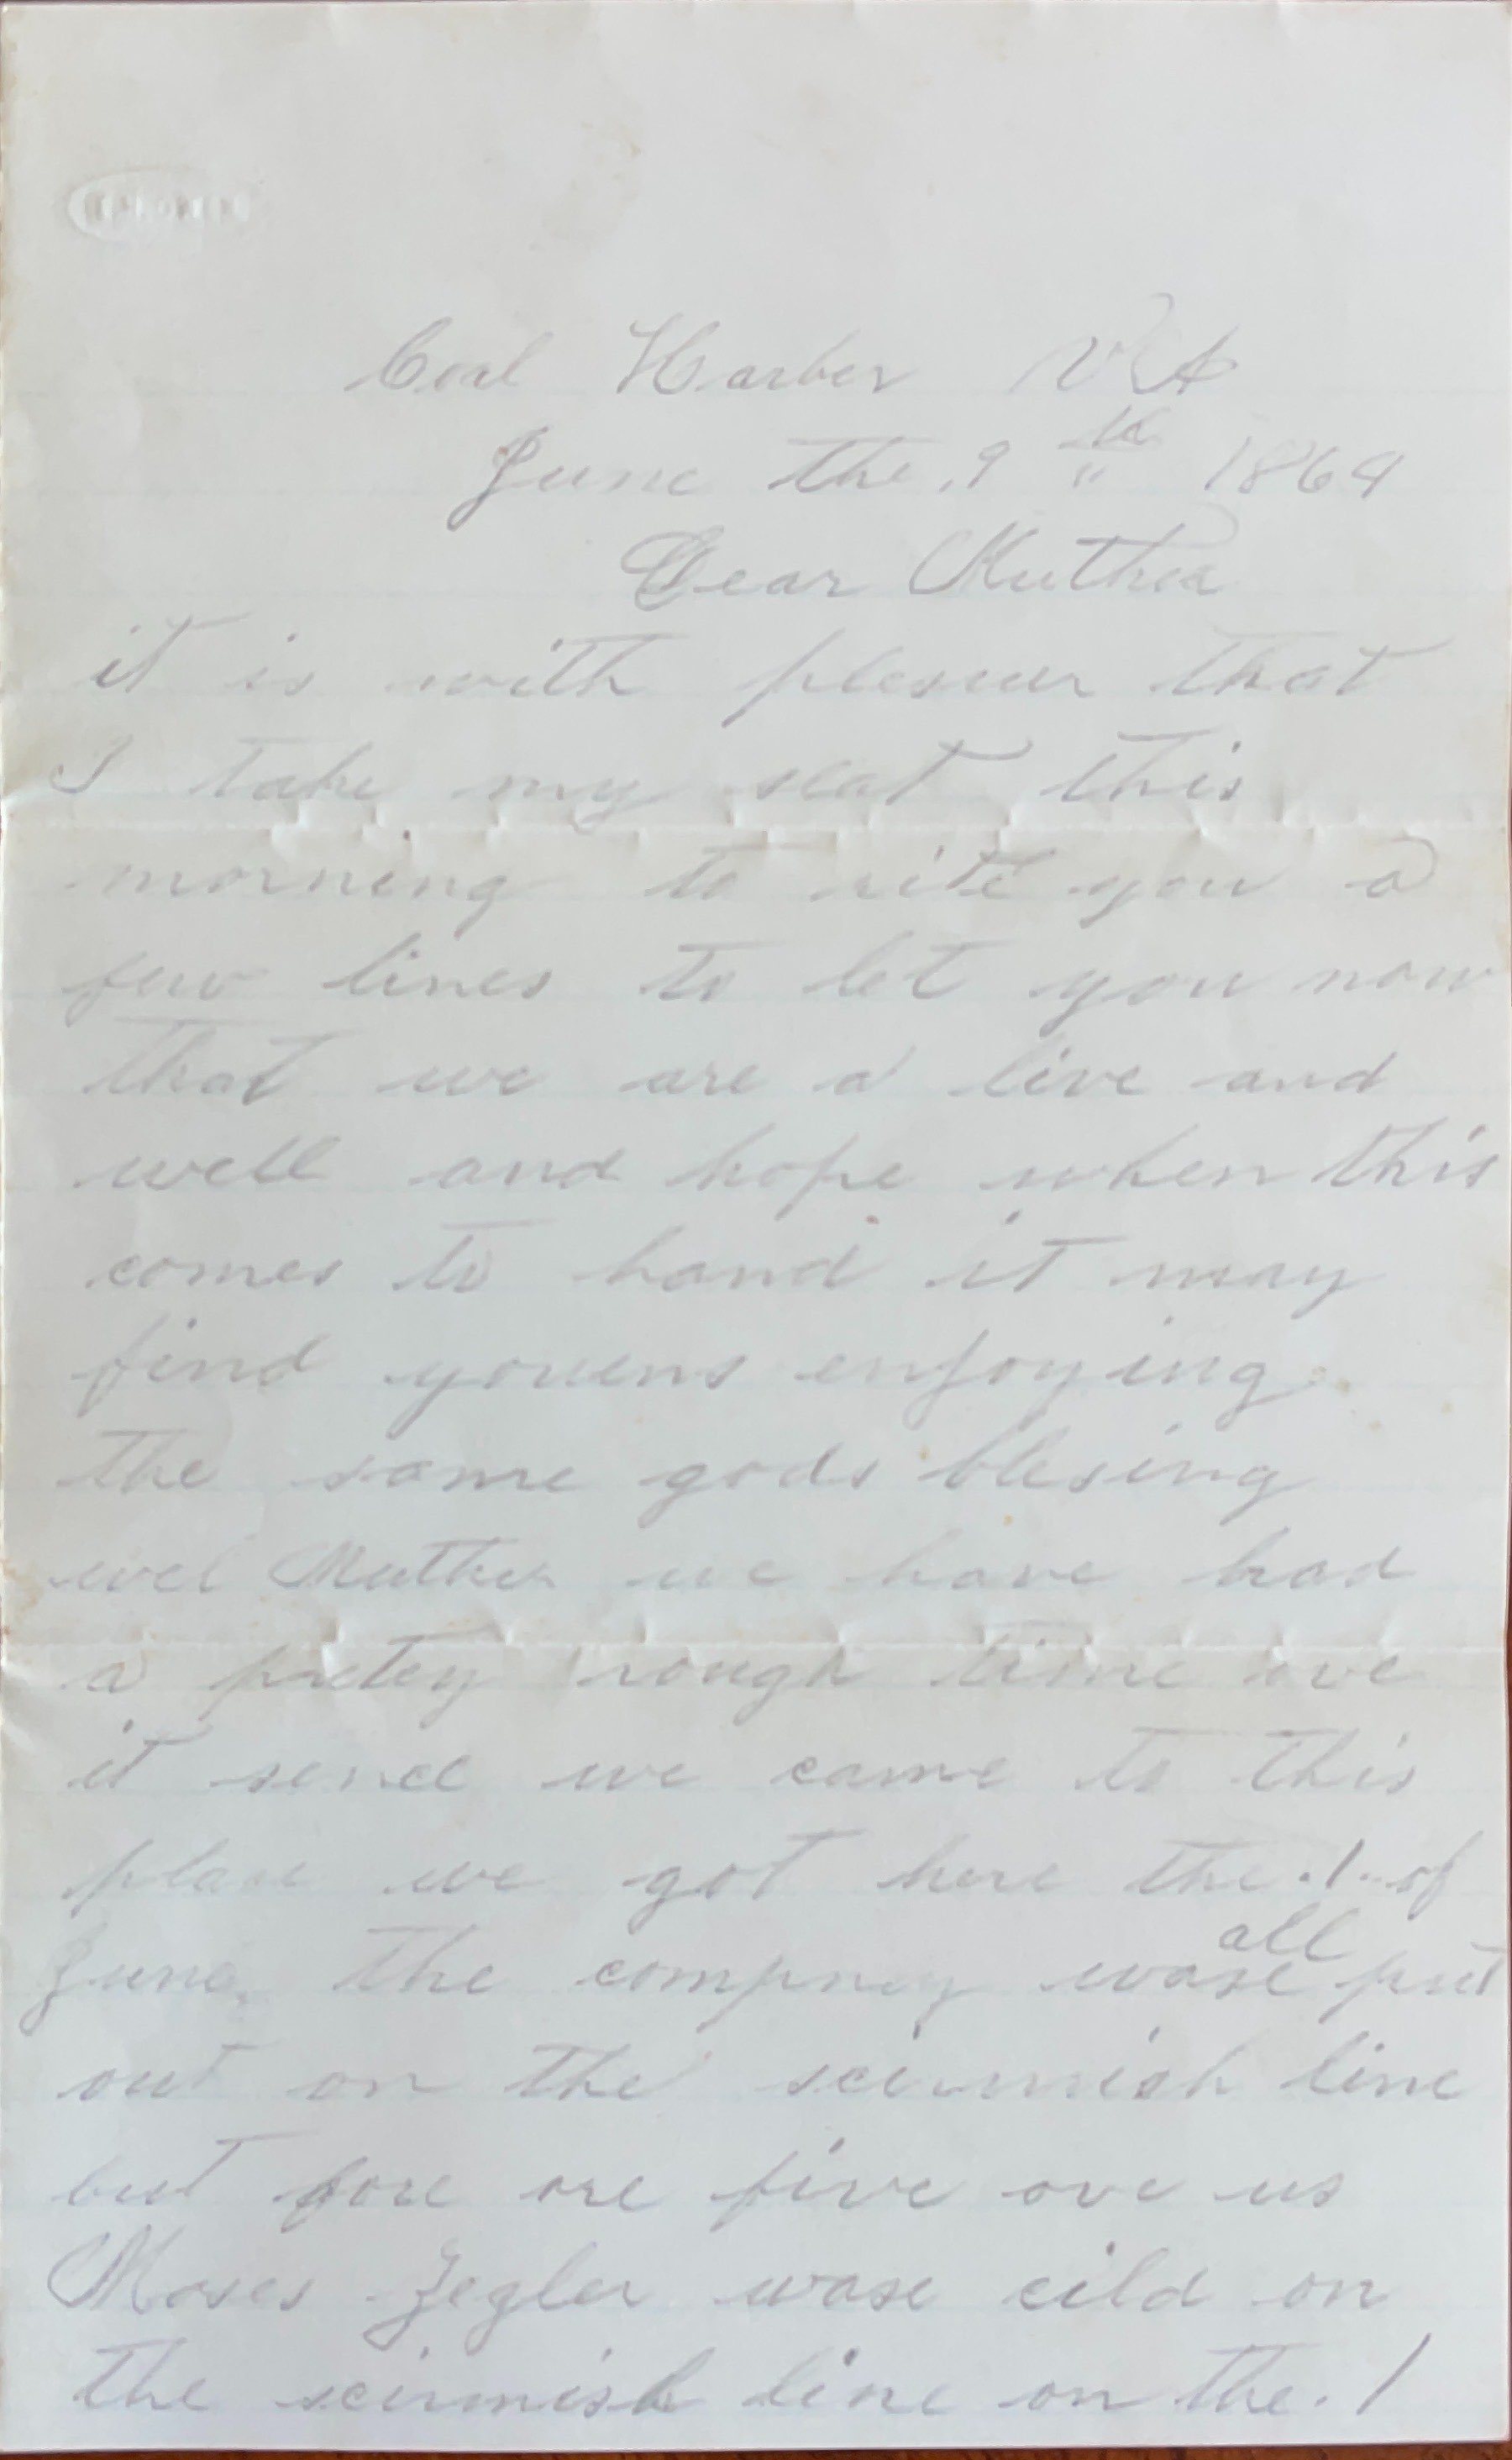 Coal Harber VA
June the .9 th 1864
Dear Muther
it is with plesuer that
I take my seat this
morning to rite you a
few lines to let you now
that we are a live and
well and hope when this
comes to hand it may
find youens enjoying
the same gods blesing
wel Muther we have had
a pretey rough time ove
it sence we came to this
place we got here the .1. of
June. the compney wase all put
out on the scirmish line
but fore ore five ove us
Moses Zegler wase cild on
the scirmish line on the .1